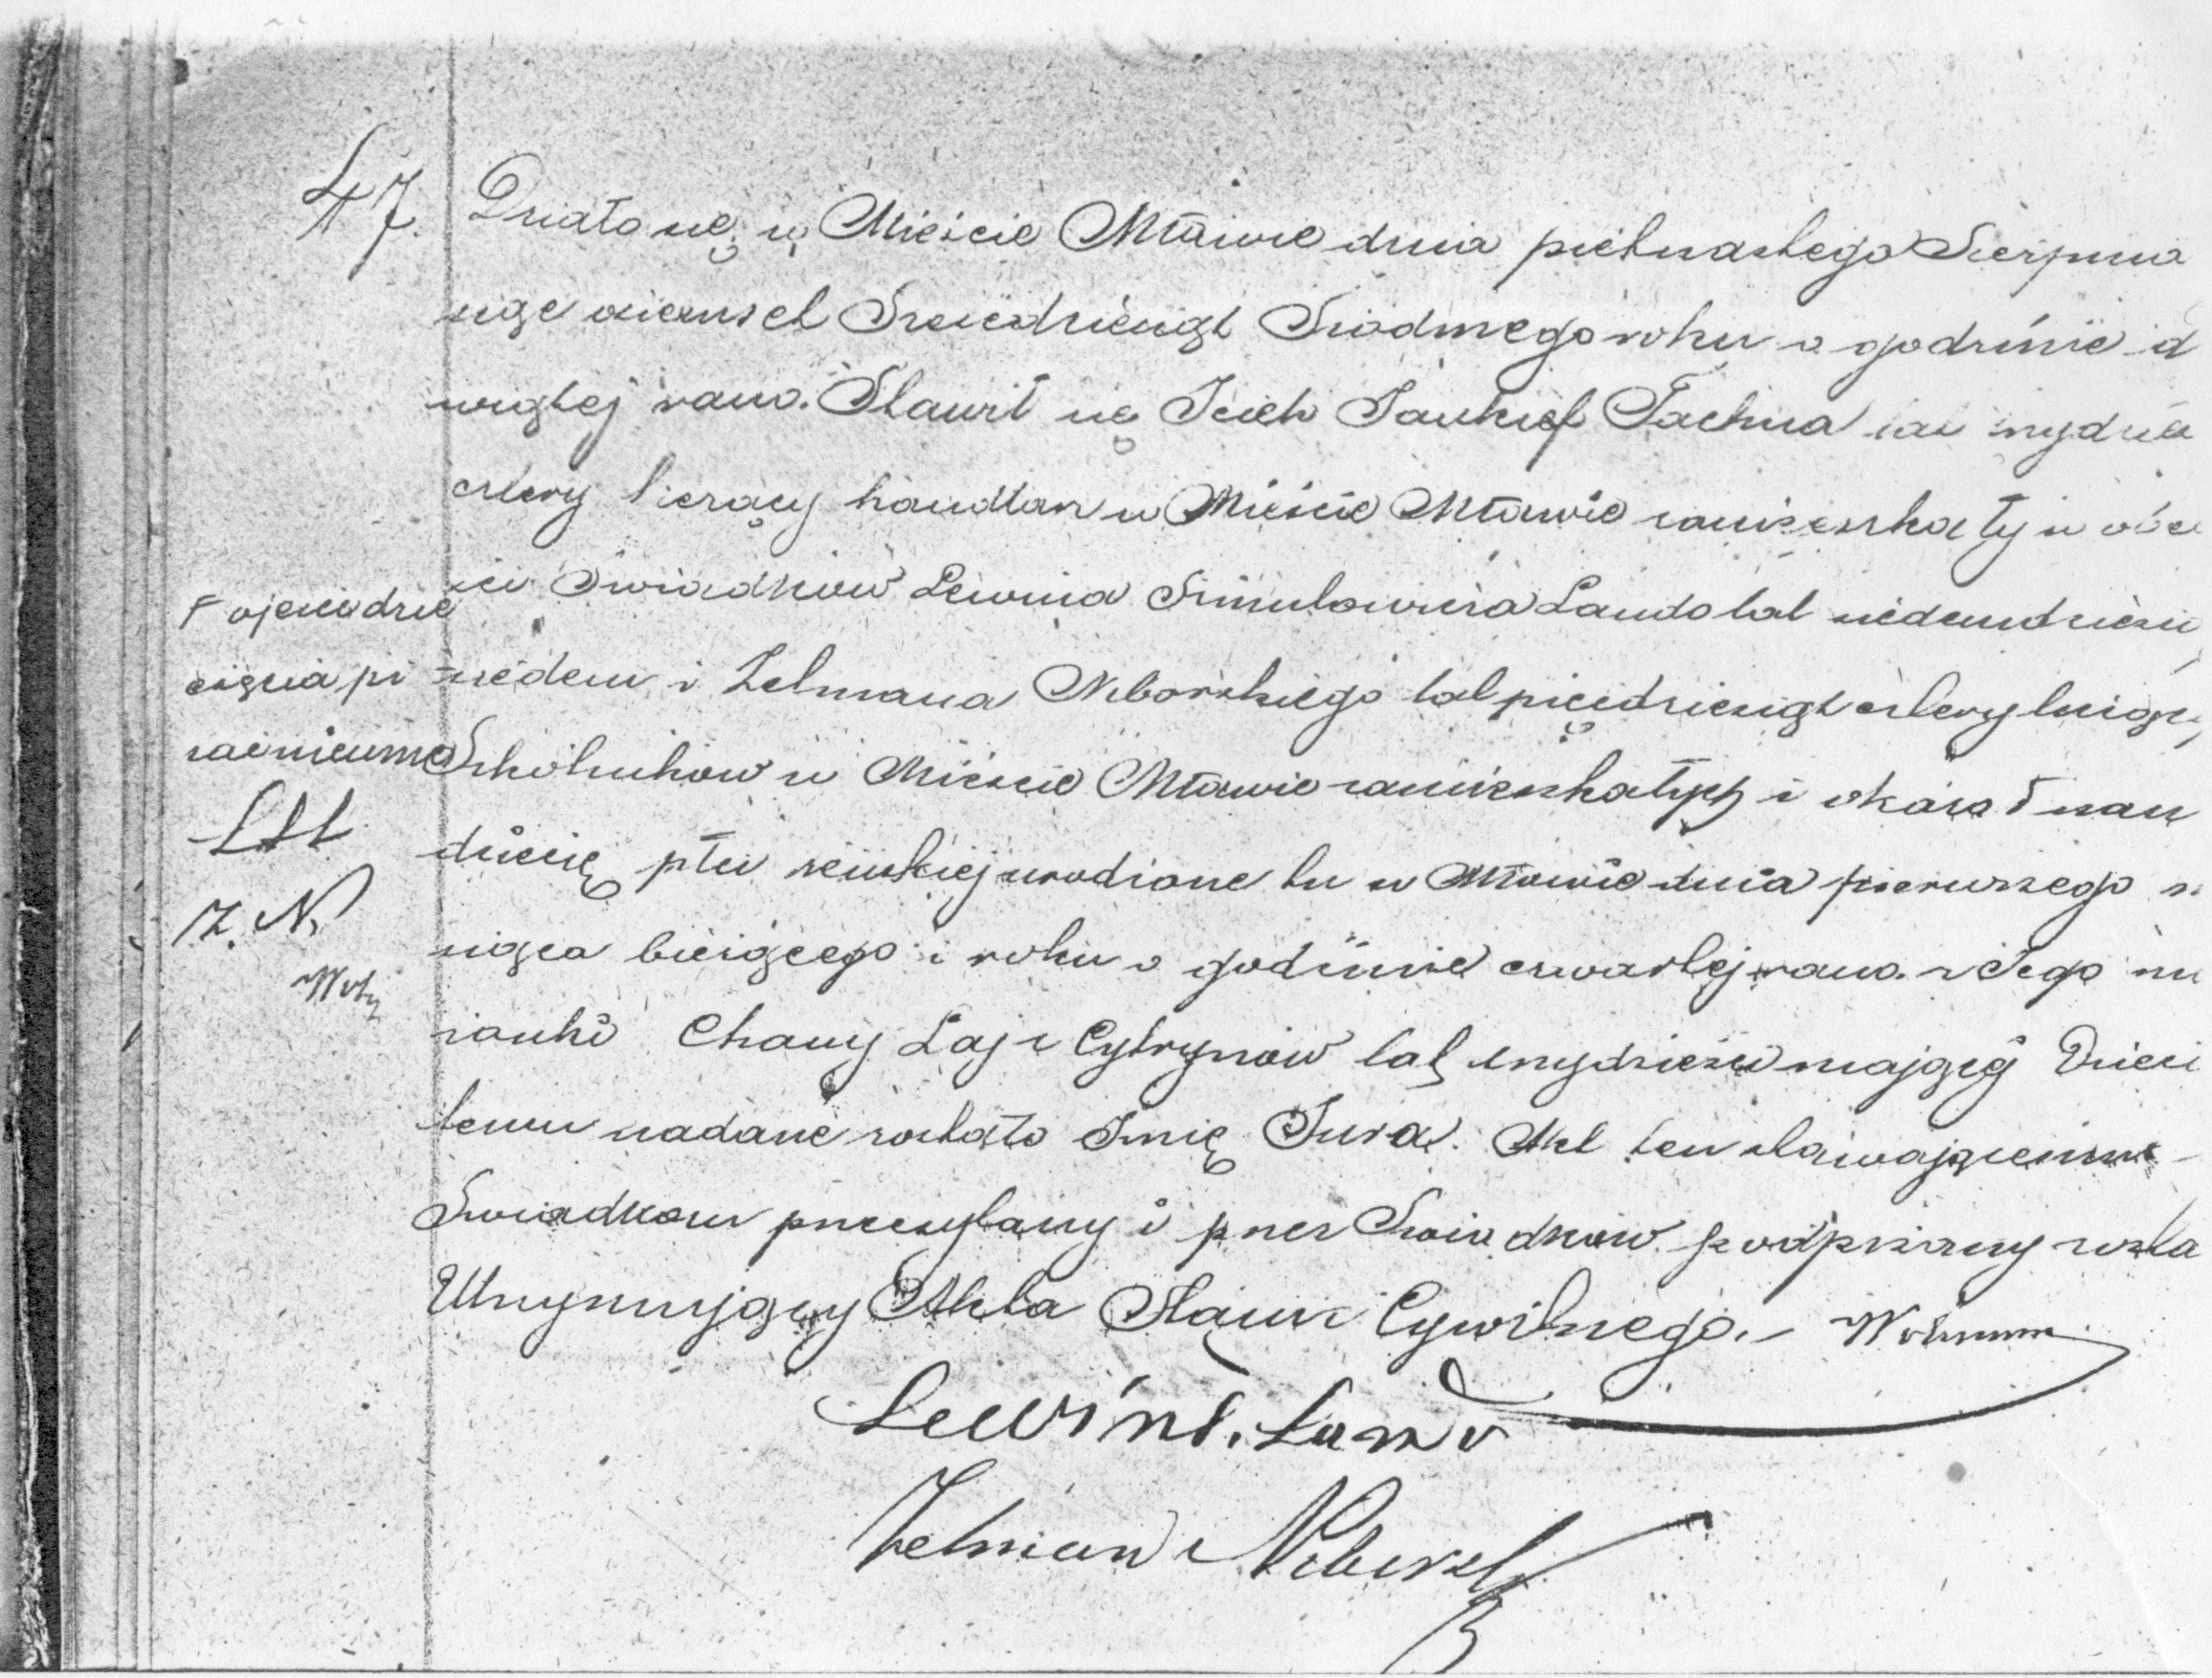 47.
Działo się w Mieście Mławie dnia pietnastego Sierpnia
siąc osiemset Sześćdziesiąt Siodmego roku o godzinie d
wiątej rano. Stawił się Icek Jankief Tachna lat trzydzie
cztery liczący handlarz w Mieście Mławie zamieszkały w obe
ści Swiadkow Lewina Simulowicza Lando lat siedemdziesi
siedem i Zelmana Niborskiego lat pięcdziesiąt cztery liczący
Szkolnikow w Mieście Mławie zamieszkałych i okazał nam
dziecię płci żenskiej urodzone tu w Mławie dnia pierwszego m
siąca bieżącego i roku o godzinie czwartej rano z Jego mał
żonki Chawy Łaje Cytrynow lat trzydzieści mającej Dzieci
temu nadane zostało Imię Sura. Akt ten stawającemu
Swiadkom przeczytany i przez Swiadkow podpisany zosta
Utrzymujący Akta Stanu Cywilnego.
ojciec zdzie
cięcia pi
sać nieumie
LSL
Z. N.
Lewin S. Lando
Zelman Niborski